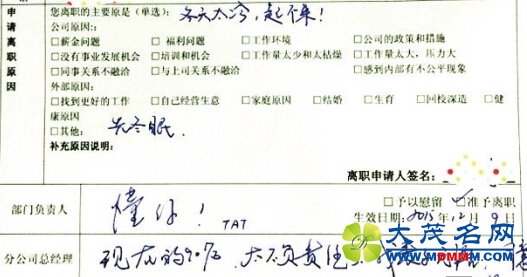 申请离职原因
您离职的主要原是(单选): 冬天太冷,起不来!
公司原因:
□薪金问题 □福利问题 □工作环境 □公司的政策和措施
□没有事业发展机会 □培训和机会 □工作量太少和太枯燥 □工作量太大,压力大
□同事关系不融洽 □与上司关系不融洽 □感到内部有不公平现象
外部原因:
□找到更好的工作 □自己经营生意 □家庭原因 □结婚 □生育 □回校深造 □健
康原因
□其他: 先冬眠.
补充原因说明:
离职申请人签名:
部门负责人 懂你! TAT
□予以慰留 准予离职
生效日期: 2015 12月9日
分公司总经理 现在的90后, 太不负责任
大茂名网
www.MDMMM.com